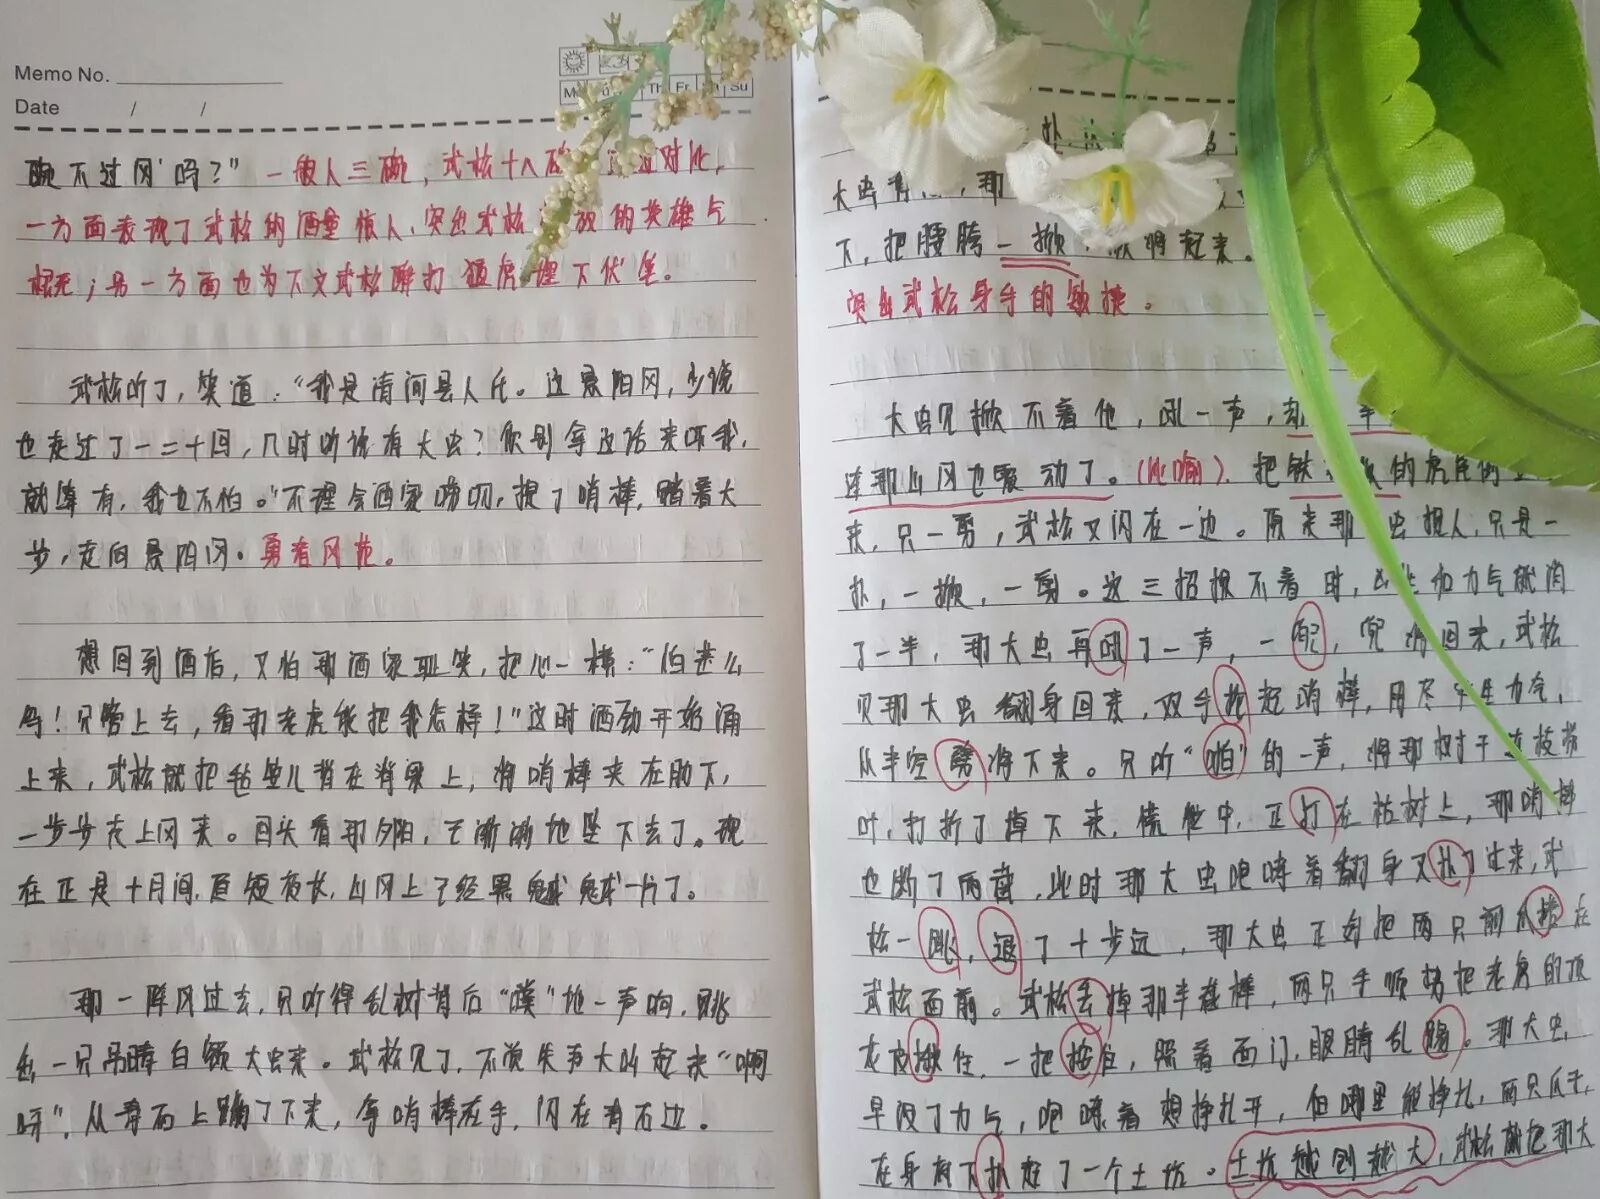 Memo No.
Date / /
Th Fr Su
碗不过冈'吗？" 一般人三碗，武松十八碗 对比，
一方面表现了武松的酒量惊人，突出武松 放的英雄气
概；另一方面也为下文武松醉打猛虎埋下伏笔。
武松听了，笑道："我是清河县人氏。这景阳冈，少说
也走过了一二十回，几时听说有大虫？你别拿这话来吓我，
就算有，我也不怕。"不理会酒家唠叨，提了哨棒，踏着大
步，走向景阳冈。勇者风范。
想回到酒店，又怕那酒家耻笑，把心一横："怕甚么
鸟！只管上去，看那老虎能把我怎样！"这时酒劲开始涌
上来，武松就把毡笠儿背在脊梁上，将哨棒夹在肋下，
一步步走上冈来。回头看那夕阳，已渐渐地坠下去了。现
在正是十月间，昼短夜长，山冈上已经黑魆魆一片了。
那一阵风过去，只听得乱树背后"噗"地一声响，跳
出一只吊睛白额大虫来。武松见了，不觉失声大叫起来"啊
呀"，从青石上翻了下来，拿哨棒在手，闪在青石边。
扑，
大虫背 ，那
下，把腰胯一掀， 将起来。
突出武松身手的敏捷。
大虫见掀不着他，吼一声，却 半
连那山冈也震动了。(比喻)，把铁 的虎尾倒
来，只一剪，武松又闪在一边。原来那 虫捉人，只是一
扑，一掀，一剪。这三招捉不着时， 力气就消
了一半，那大虫再吼了一声，一兜，兜将回来，武松
见那大虫翻身回来，双手抡起哨棒，用尽平生力气，
从半空劈将下来。只听"啪"的一声，将那树干连枝带
叶，打折了掉下来，慌忙中，正打在枯树上，那哨棒
也断了两截，此时那大虫咆哮着翻身又扑了过来，武
松一跳，退了十步远，那大虫正好把两只前爪搭在
武松面前。武松丢掉那半截棒，两只手顺势把老虎的顶
花皮揪住，一把按住，照着面门，眼睛乱踢。那大虫
早没了力气，咆哮着想挣扎开，但哪里能挣扎，两只爪子，
在身底下扒起了一个土坑。土坑越刨越大，武松就把那大